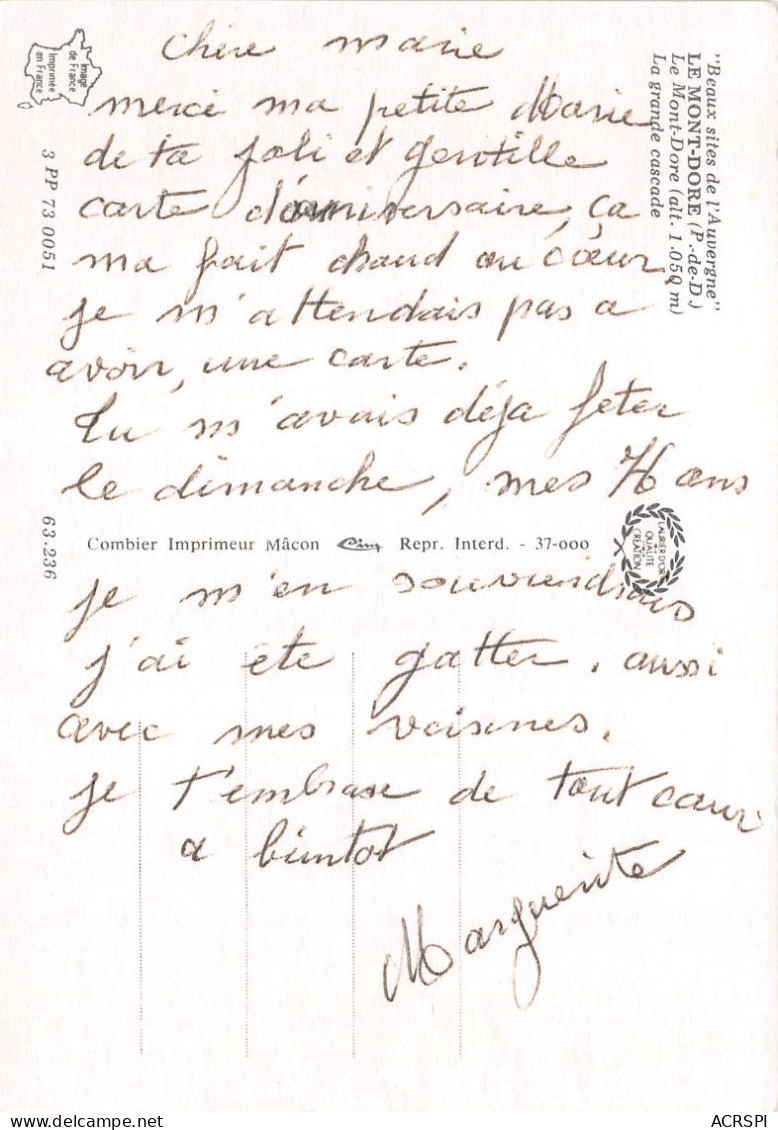 chère marie
merci ma petite Marie
de ta joli et gentille
carte d'anniversaire, ça
ma fait chaud au cœur,
je m'attendais pas a
avoir, une carte.
tu m'avais déja feter
le dimanche, mes ans
je m'en souviendrais
j'ai éte gatter, aussi
avec mes voisines.
je t'embrase de tout cœur
a bientot
Marguerite
"Beaux sites de l'Auvergne"
LE MONT-DORE (P.-de-D.)
Le Mont-Dore (alt. 1.050 m)
La grande cascade
Image
de France
Imprimée
en France
3 PP 73 0051
63.236
Combier Imprimeur Mâcon Cim Repr. Interd. - 37-000
LAURIER D'OR
QUALITÉ
CRÉATION
delcampe.net
ACRSPI